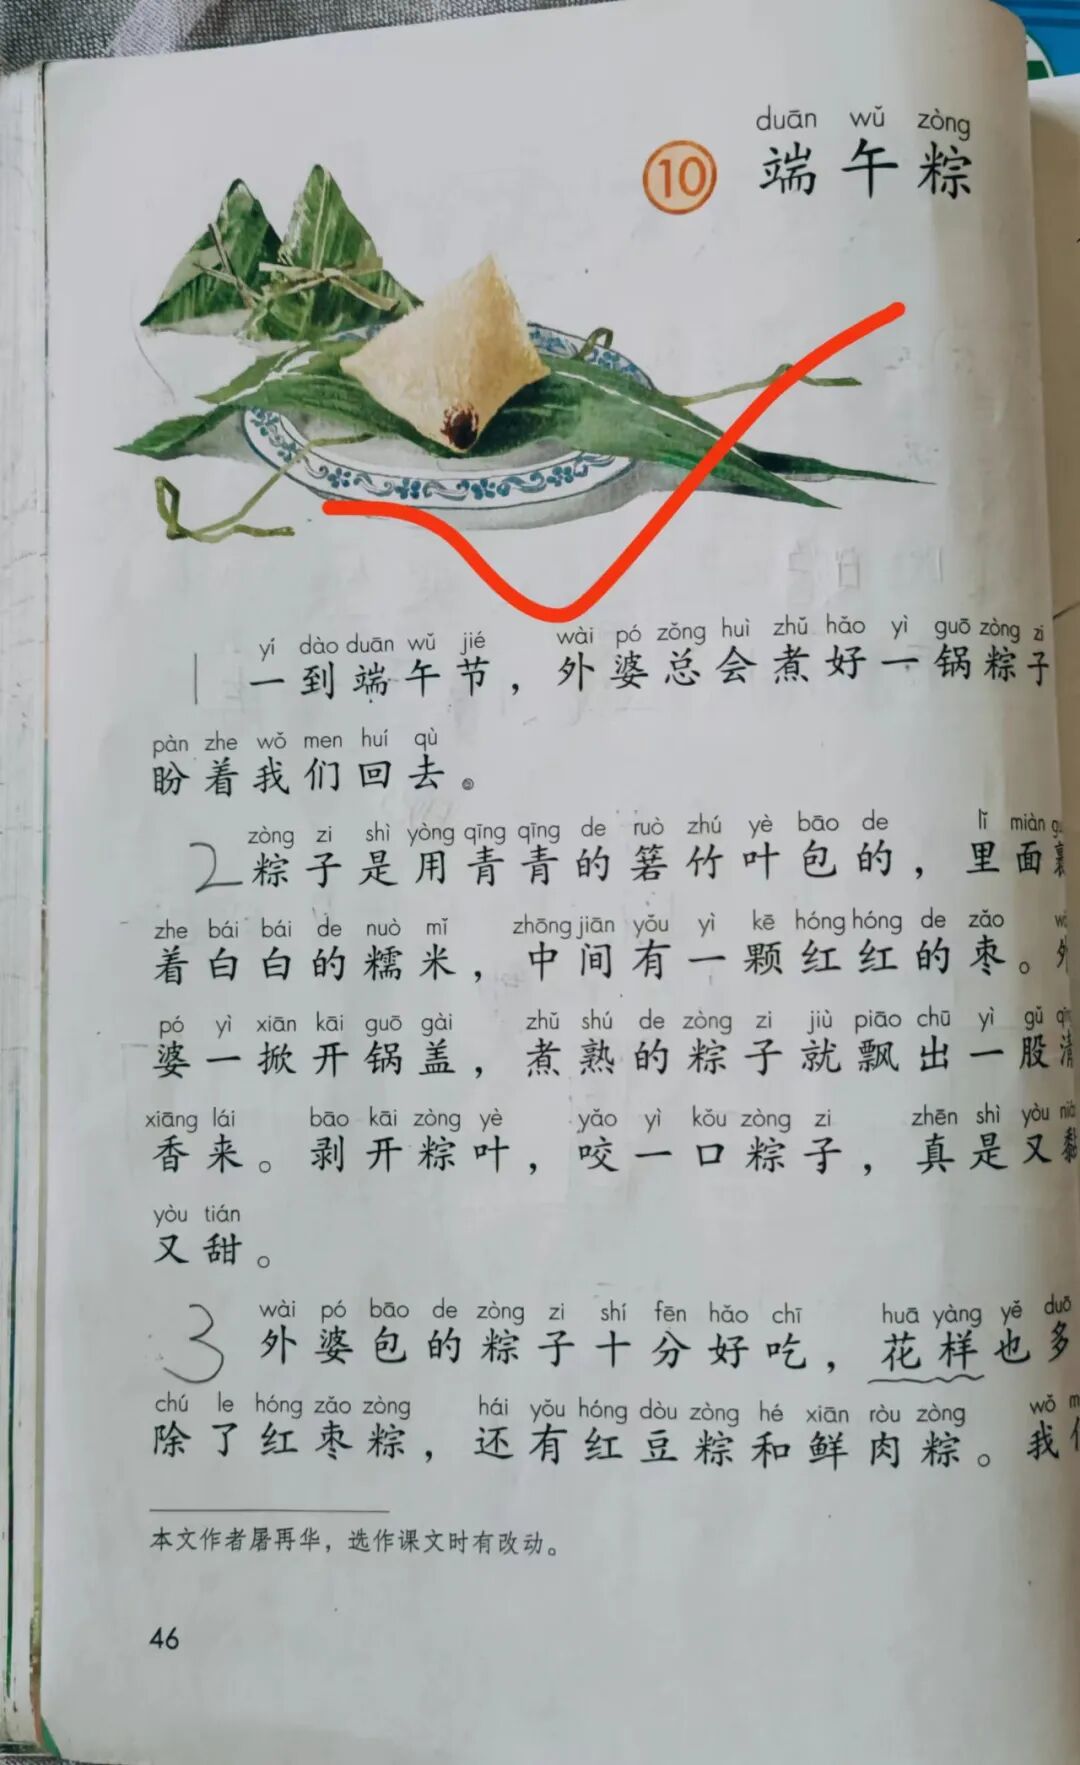 duān wǔ zòng
⑩ 端午粽
yí dào duān wǔ jié wài pó zǒng huì zhǔ hǎo yì guō zòng zi
1 一到端午节，外婆总会煮好一锅粽子
pàn zhe wǒ men huí qù
盼着我们回去。
zòng zi shì yòng qīng qīng de ruò zhú yè bāo de lǐ miàn
2 粽子是用青青的箬竹叶包的，里面裹
zhe bái bái de nuò mǐ zhōng jiān yǒu yì kē hóng hóng de zǎo
着白白的糯米，中间有一颗红红的枣。外
pó yì xiān kāi guō gài zhǔ shú de zòng zi jiù piāo chū yì gǔ
婆一掀开锅盖，煮熟的粽子就飘出一股清
xiāng lái bāo kāi zòng yè yǎo yì kǒu zòng zi zhēn shì yòu
香来。剥开粽叶，咬一口粽子，真是又黏
yòu tián
又甜。
wài pó bāo de zòng zi shí fēn hǎo chī huā yàng yě duō
3 外婆包的粽子十分好吃，花样也多
chú le hóng zǎo zòng hái yǒu hóng dòu zòng hé xiān ròu zòng wǒ
除了红枣粽，还有红豆粽和鲜肉粽。我
本文作者屠再华，选作课文时有改动。
46